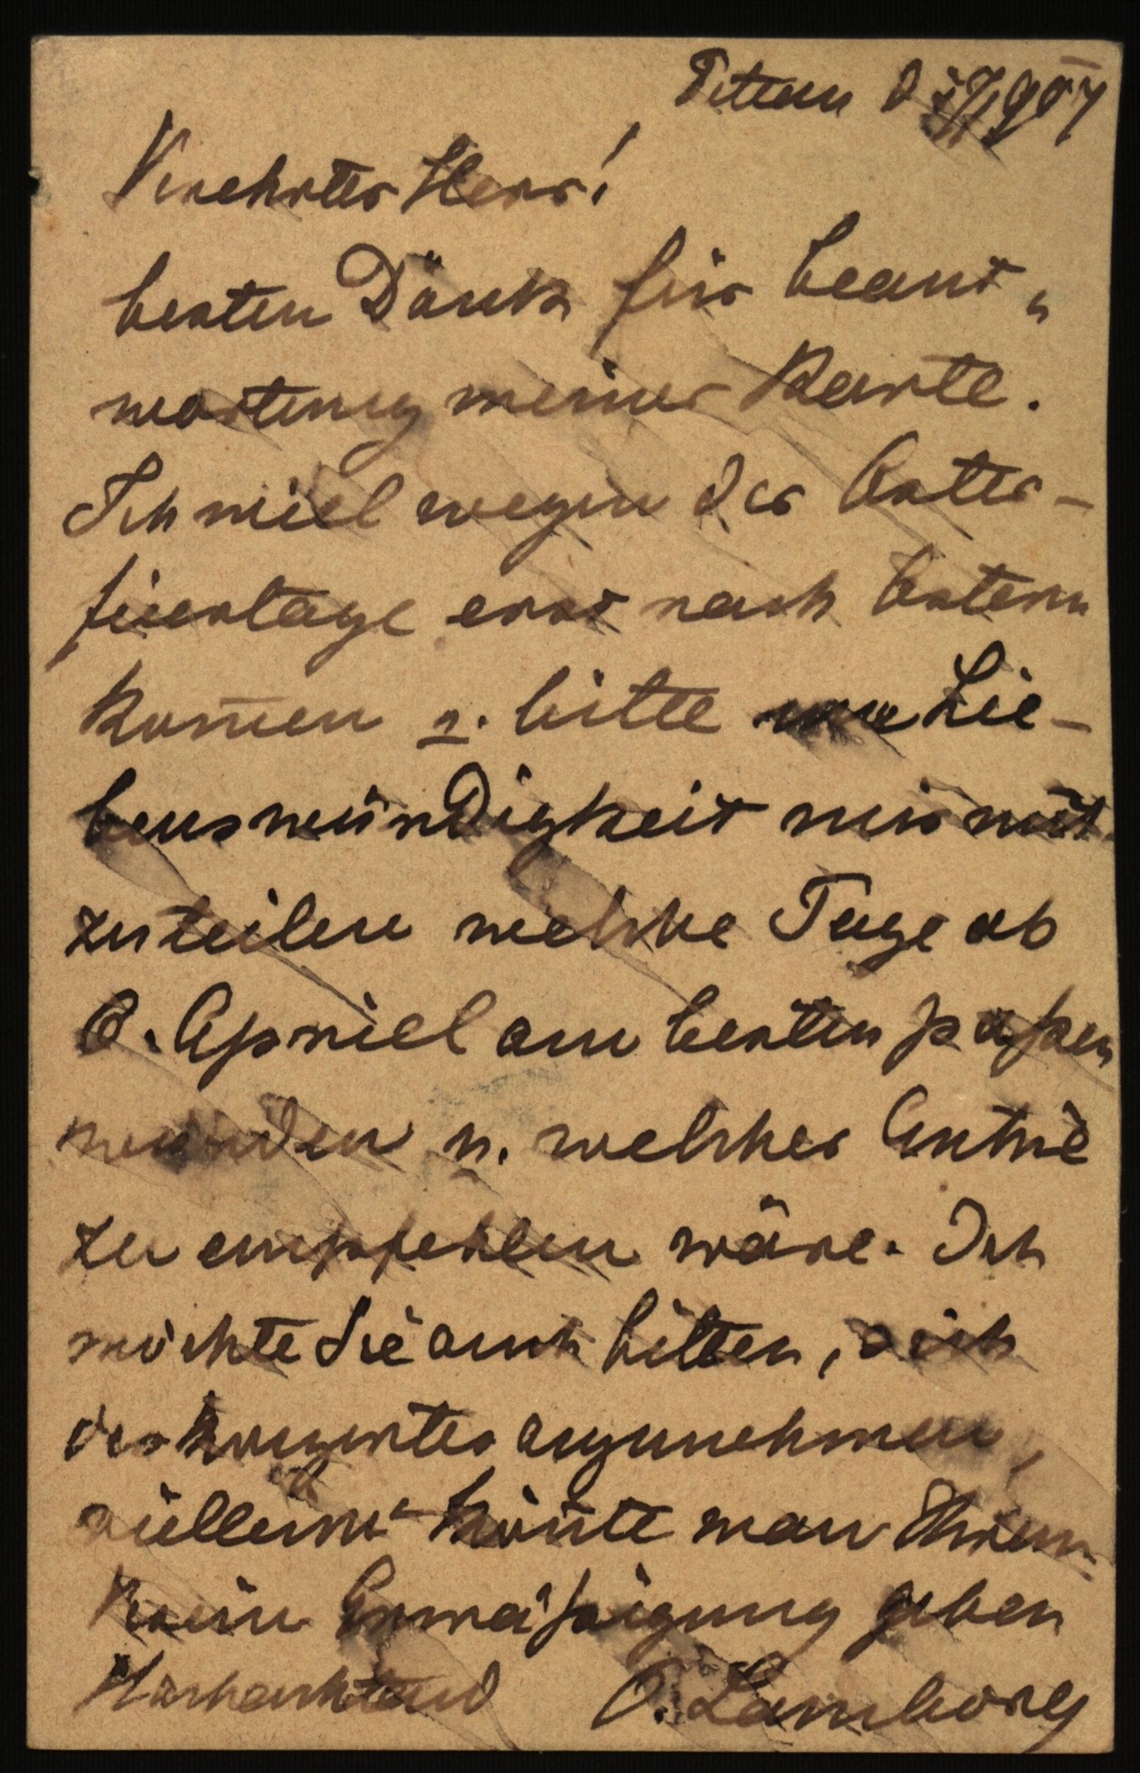 Pettau d
Verehrter Herr!
besten Dank für beant„
wortung meiner Karte.
Ich wiel wegen der Oster-
feiertage erst nach Ostern
kom̅en u. bitte Lie-
benswürdigkeit mir mit
zuteilen welche Tage ab
6. Apriel am besten paßen
würden u. welches Entrè
zu empfehlen wäre. Ich
möchte Sie auch bitten, sich
des Konzertes anzunehmen,
kön̅te man Ihrem
Verein Ermäßigung geben
Hochachtend O. Lamborg